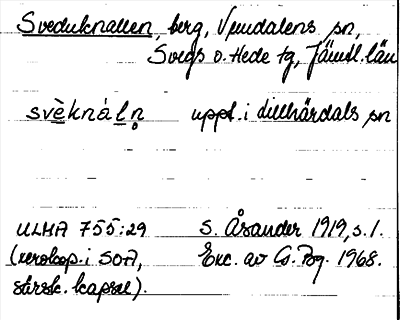 Sveduknallen, berg, Vemdalens sn,
Svegs o. Hede tg, Jämtl. län
svèknáln̥ uppt. i Lillhärdals sn
ULMA 755:29 S. Åsander 1919, s. 1.
(xerokop. i SOA, Exc. av G. Bg. 1968.
särsk. kapsel).